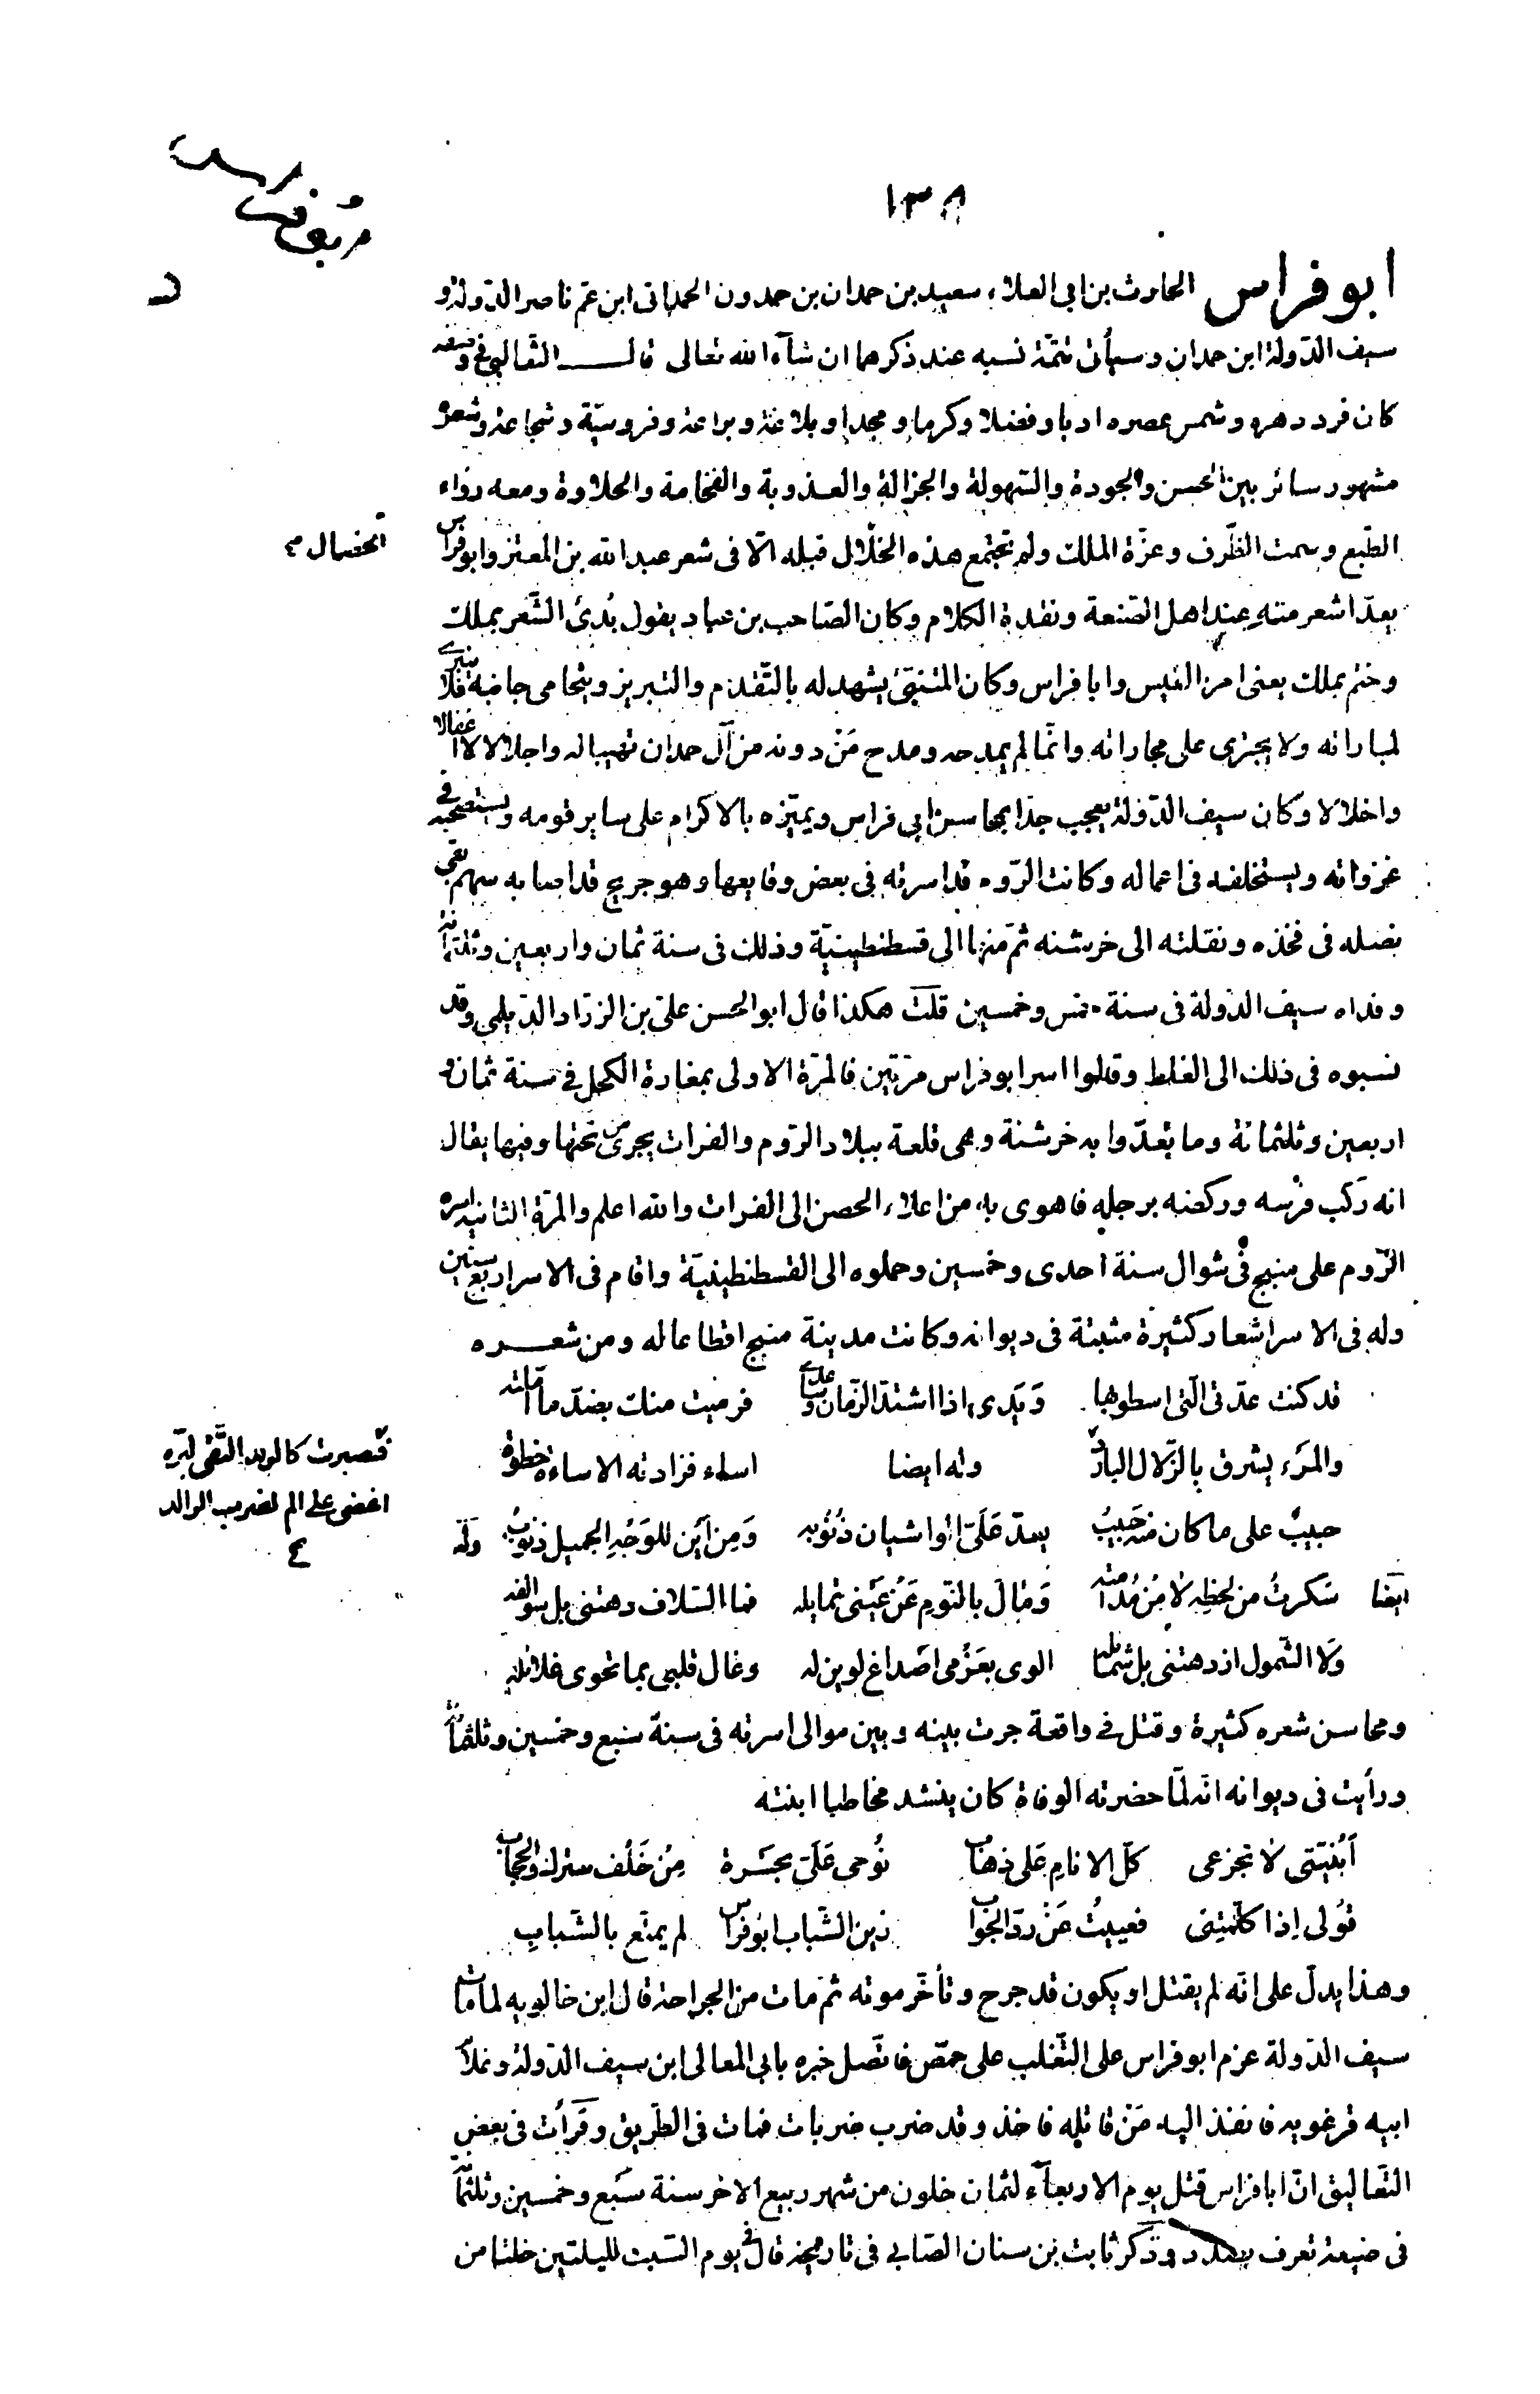 ١٣٨
ابو فراس الحارث بن ابى العلاء سعيد بن حمدان بن حمدون الحمدانى ابن عم ناصر الدّولة و
سيف الدّولة ابن حمدان وسيأتى تتمّة نسبه عند ذكرهما ان شآء الله تعالى قال الثعالبى فى وصفه
كان فرد دهره وشمس عصره ادبا وفضلا وكرما ومجدا وبلاغة وبراعة وفروسيّة وشجاعة وشعره
مشهور سائر بين الحسن والجودة والسّهولة والجزالة والعذوبة والفخامة والحلاوة ومعه رواء
الطّبع وسمت الظّرف وعزّة الملك ولم تجتمع هذه الخلال قبله الّا فى شعر عبد الله بن المعتز وابو فراس
الخصال
يعدّ اشعر منه عند اهل الصّنعة ونقدة الكلام وكان الصّاحب بن عباد يقول بُدئ الشّعر بملك
وختم بملك يعنى امرء القيس وابا فراس وكان المتنبّئ يشهد له بالتّقدّم والتبريز ويتحامى جانبه فلا ينبرى
لمباراته ولا يجترى على مجاراته وانّما لم يمدحه ومدح مَنْ دونه من آل حمدان تهيبا له واجلالا لا اغفالا
واخلالا وكان سيف الدّولة يعجب جدّا بمحاسن ابى فراس ويميّزه بالاكرام على ساير قومه ويستصحبه فى
غزواته ويستخلفه فى اعماله وكانت الرّوم قد اسرته فى بعض وقايعها وهو جريح قد اصابه سهم بقى
نصله فى فخذه ونقلته الى خرشنه ثمّ منها الى قسطنطينيّة وذلك فى سنة ثمان واربعين وثلثمائة
وفداه سيف الدّولة فى سنة خمس وخمسين قلت هكذا قال ابو الحسن علىّ بن الزرّاد الدّيلمى وقد
نسبوه فى ذلك الى الغلط وقالوا اسر ابو فراس مرّتين فالمرّة الاولى بمغارة الكحل فى سنة ثمان و
اربعين وثلثمائة وما تعدّوا به خرشنة وهى قلعة ببلاد الرّوم والفرات يجرى من تحتها وفيها يقال
انه ركب فرسه وركضه برجله فاهوى به من اعلاء الحصن الى الفرات والله اعلم والمرّة الثانية اسره
الرّوم على منبج فى شوال سنة احدى وخمسين وحملوه الى القسطنطينيّة واقام فى الاسر اربع سنين
وله فى الاسر اشعار كثيرة مثبتة فى ديوانه وكانت مدينة منبج اقطاعا له ومن شعره
قد كنت عدّتى الّتى اسطو بها وَيَدى اذا اشتدّ الزّمان وساعدى فرميت منك بضدّ ما املته
والمرَء يشرق بالزّلال البارد وله ايضا اساء فزادته الاساءة حظوة
فصبرت كالولد التّقى لبرّه
اغضى على الم لضرب الوالد
حبيبٌ على ما كان منه حَبيبُ يعدّ عَلَىّ الواشيان ذُنُوبه وَمِن اَين للوَجْهِ الجميل ذنوبُ وله
ايضا سَكرتُ من لحظِه لا مِنْ مُدامته وَمَالَ بالنّومِ عَنْ عَيْنى تمايله فما السّلاف دهتنى بل سوالفه
وَلَا الشّمول ازدهتنى بل شمائله الوى بعَزْمى اصداغ لوين له وغال قلبى بما تحوى غلائله
ومحاسن شعره كثيرة وقتل فى واقعة جرت بينه وبين موالى اسرته فى سنة سبع وخمسين وثلثمائة
ورأيت فى ديوانه انّه لمّا حضرته الوفاة كان ينشد مخاطبا ابنته
اَبُنَيّتى لا تجزعى كلّ الانامِ عَلى ذهاب نُوحى عَلَىّ بحَسْرة مِنْ خَلْف سترك والحجاب
قولى اِذا كلّمتِنى فعييتُ عَنْ ردّ الجواب زين الشّباب ابو فراس لم يمتّع بالشّبابِ
وهذا يدلّ على انّه لم يقتل او يكون قد جرح وتأخّر موته ثمّ مات من الجراحة قال ابن خالويه لما مات
سيف الدّولة عزم ابو فراس على التّغلب على حمص فاتّصل خبره بابى المعالى ابن سيف الدّولة وغلام
ابيه قرغويه فانفذ اليه مَنْ قاتله فاخذ وقد ضرب ضربات فمات فى الطّريق وقرأت فى بعض
التّعاليق انّ ابا فراس قتل يوم الاربعآء لثمان خلون من شهر ربيع الاخر سنة سَبع وخمسين وثلثمائة
فى ضيعة تعرف وذكر ثابت بن سنان الصّابى فى تاريخه قال فى يوم السّبت لليلتين خلتا من